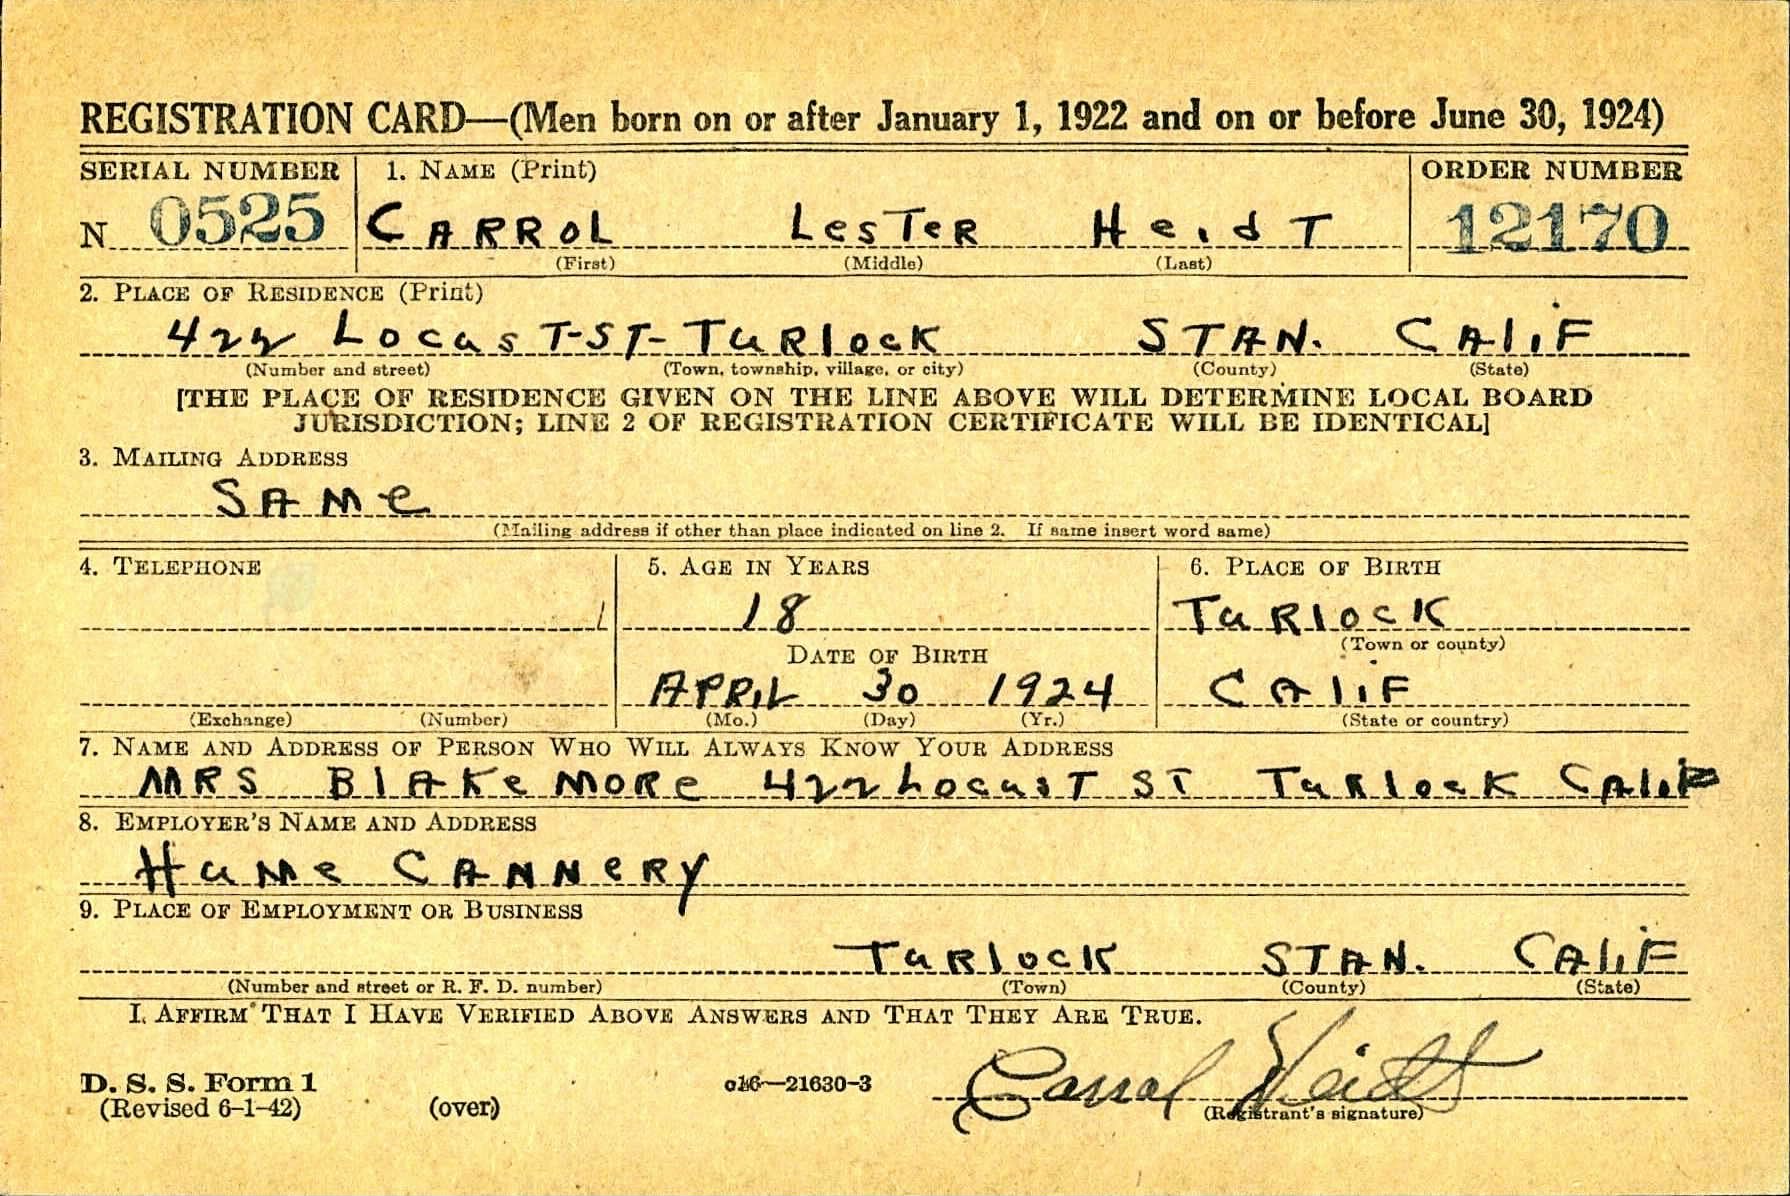 REGISTRATION CARD—(Men born on or after January 1, 1922 and on or before June 30, 1924)
SERIAL NUMBER 1. NAME (Print) ORDER NUMBER
N 0525 CARROL LesTeR HeidT 12170
(First) (Middle) (Last)
2. PLACE OF RESIDENCE (Print)
422 LocusT-ST- TuRlocK STAN. CAliF
(Number and street) (Town, township, village, or city) (County) (State)
[THE PLACE OF RESIDENCE GIVEN ON THE LINE ABOVE WILL DETERMINE LOCAL BOARD
JURISDICTION; LINE 2 OF REGISTRATION CERTIFICATE WILL BE IDENTICAL]
3. MAILING ADDRESS
SAMe
(Mailing address if other than place indicated on line 2. If same insert word same)
4. TELEPHONE 5. AGE IN YEARS 6. PLACE OF BIRTH
18 TuRlocK
DATE OF BIRTH (Town or county)
APRIL 30 1924 CAliF
(Exchange) (Number) (Mo.) (Day) (Yr.) (State or country)
7. NAME AND ADDRESS OF PERSON WHO WILL ALWAYS KNOW YOUR ADDRESS
MRS BlAKeMORe 422 LocusT ST TuRlocK CAliF
8. EMPLOYER'S NAME AND ADDRESS
HuMe CANNeRY
9. PLACE OF EMPLOYMENT OR BUSINESS
TuRlocK STAN. CAliF
(Number and street or R. F. D. number) (Town) (County) (State)
I AFFIRM THAT I HAVE VERIFIED ABOVE ANSWERS AND THAT THEY ARE TRUE.
D. S. S. Form 1 c16—21630-3 Carrol Heidt
(Revised 6-1-42) (over) (Registrant's signature)